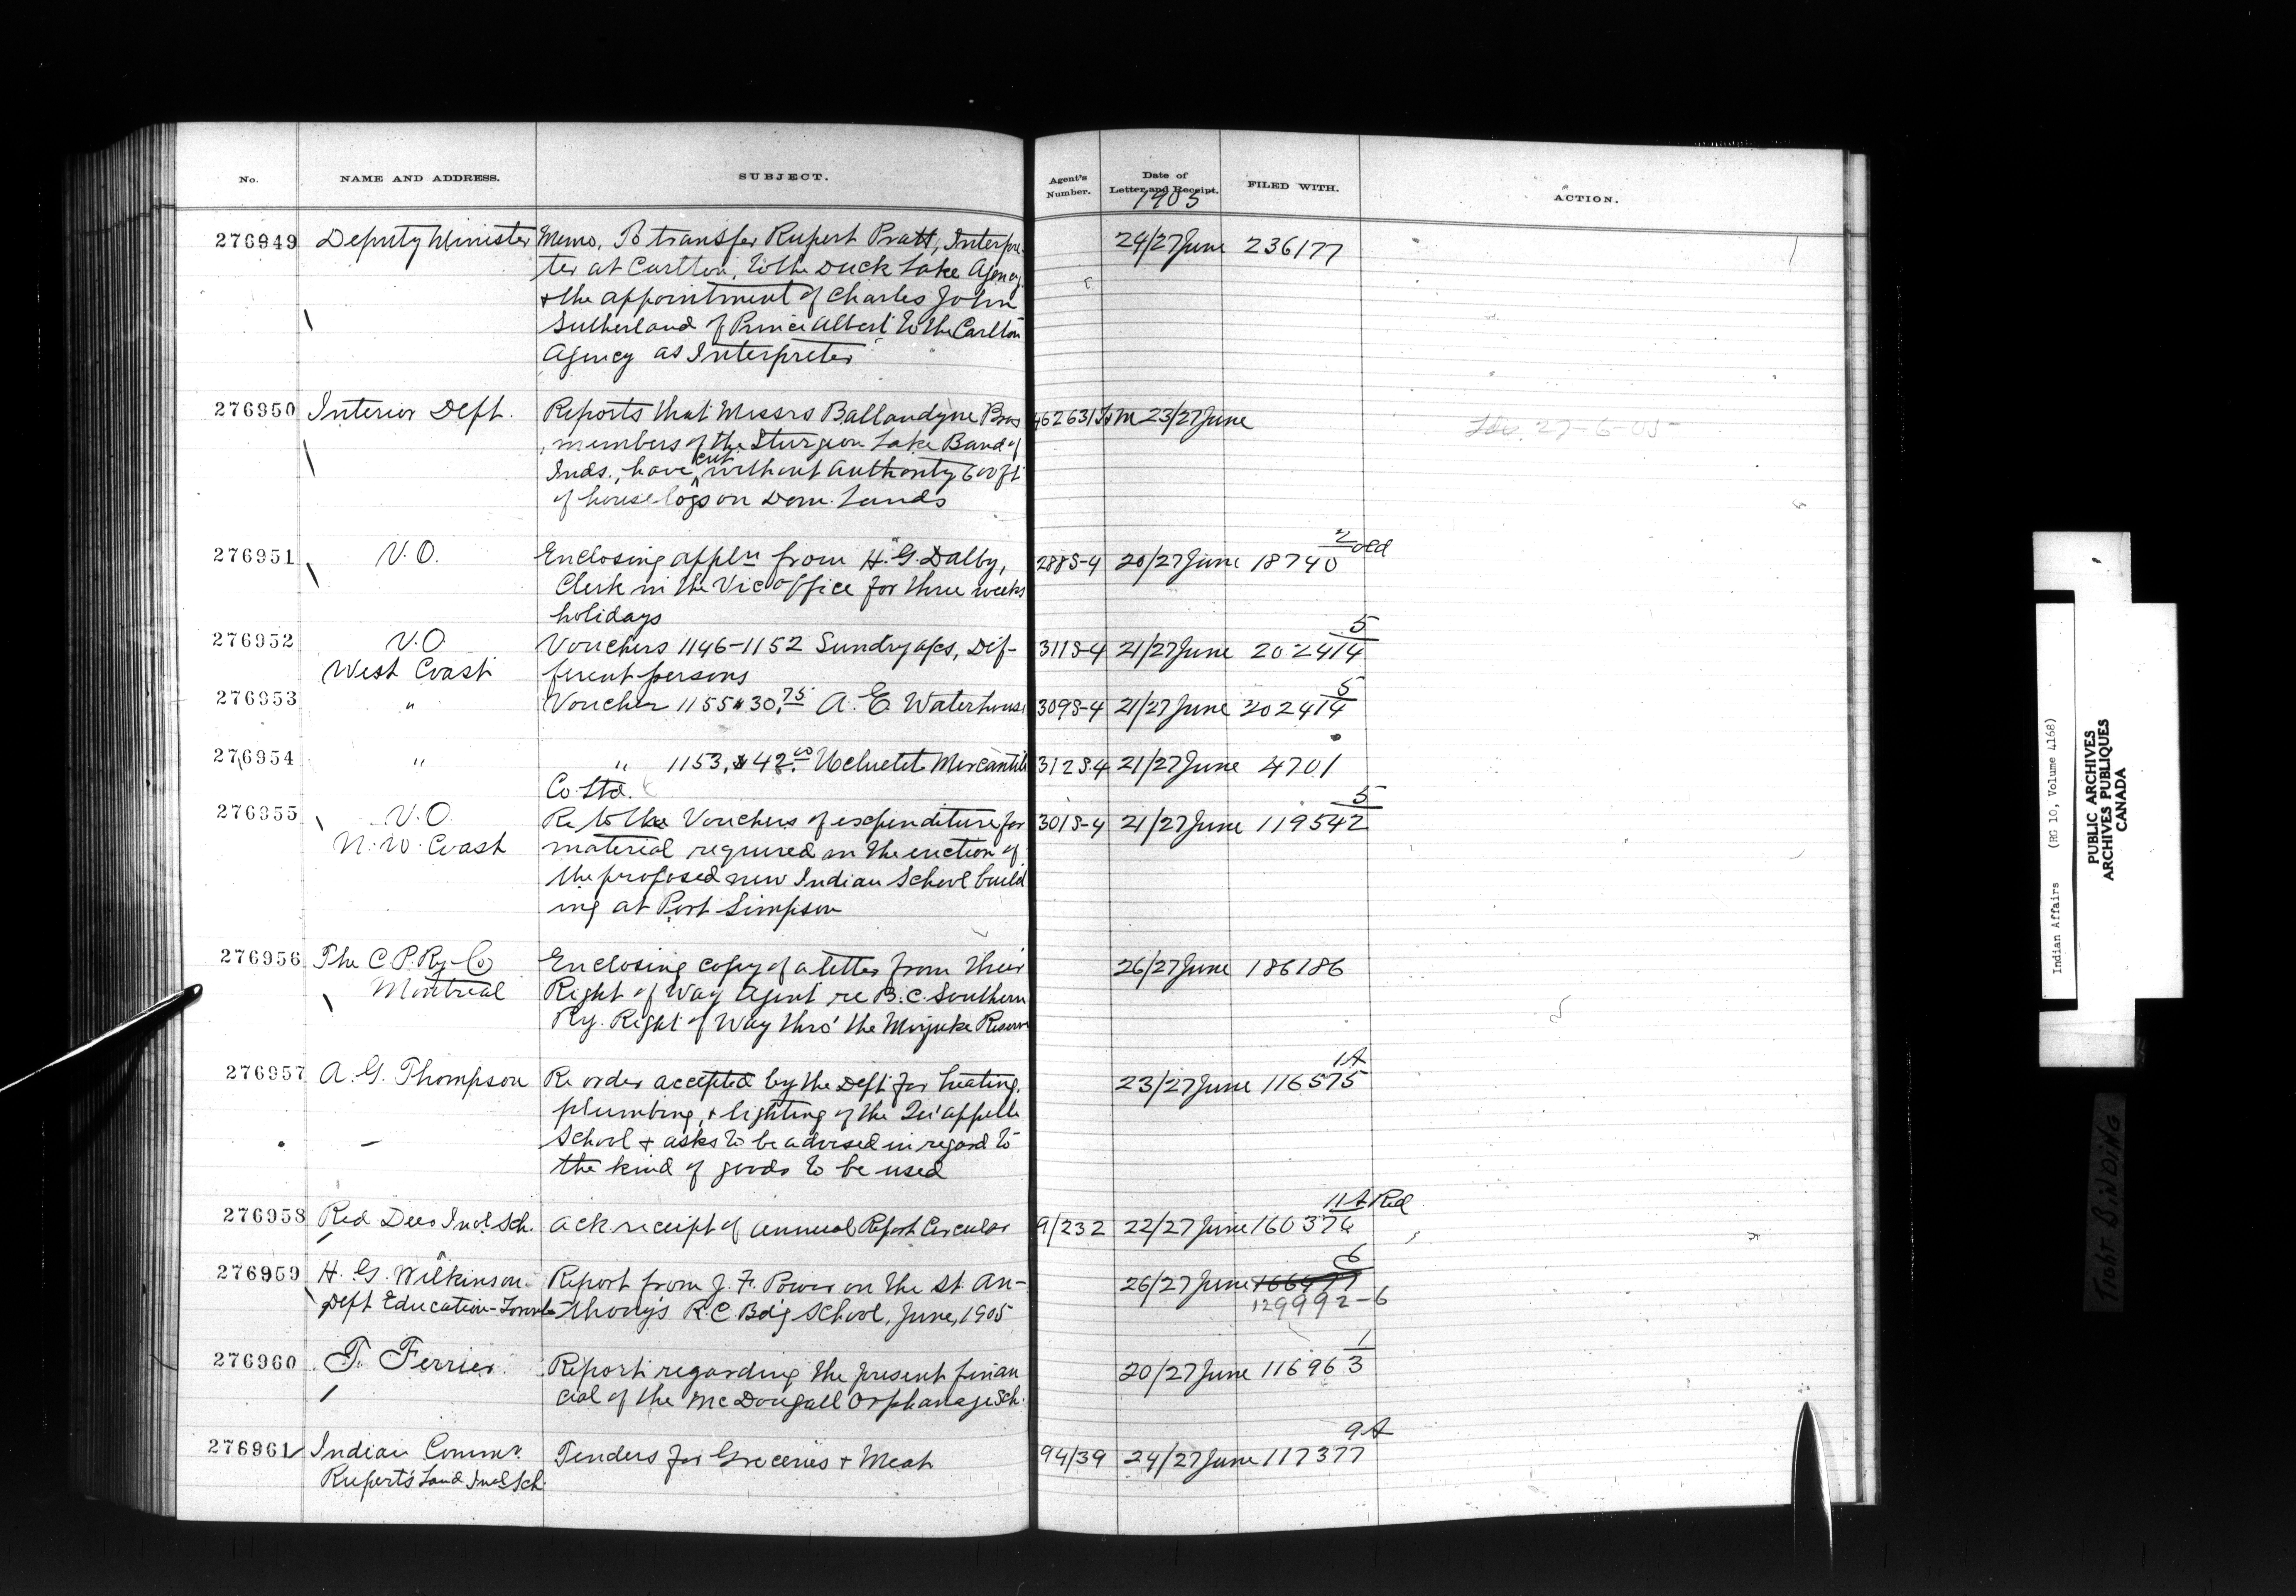 No. NAME AND ADDRESS. SUBJECT. Agent's Number. Date of Letter and Receipt. FILED WITH. ACTION.
1905
276949 Deputy Minister Memo. To transfer Rupert Pratt, Interpre- 24/27 June 236177
ter at Carlton, to the Duck Lake Agency
& the appointment of Charles John
Sutherland of Prince Albert to the Carlton
Agency as Interpreter
276950 Interior Dept. Reports that Messrs Ballandyne Bros 462631 T&M 23/27 June
members of the Sturgeon Lake Band of 27-6-05
Inds., have cut without authority 600 ft
of house logs on Dom. Lands
276951 V.O. Enclosing appln from H. G. Dalby, 288S-4 20/27 June 18740 2 Old
Clerk in the Vic Office for three weeks
holidays
276952 V.O Vouchers 1146-1152 Sundry a/cs, Dif- 311S-4 21/27 June 202414 5
West Coast ferent persons
276953 " Voucher 1155 $30.75 A. E. Waterhouse 309S-4 21/27 June 202414 5
276954 " " 1153, $42.50 Ucluelet Mercantile 312S-4 21/27 June 4701
Co. Ltd.
276955 V.O. Re to the Vouchers of expenditure for 301S-4 21/27 June 119542 5
N.W. Coast material required in the erection of
the proposed new Indian School build
ing at Port Simpson
276956 The C.P. Ry Co Enclosing copy of a letter from their 26/27 June 186186
Montreal Right of Way Agent re B.C. Southern
Ry. Right of Way thro' the Reserve
276957 A. G. Thompson Re order accepted by the Dept for heating, 23/27 June 116575 1A
plumbing, & lighting of the Qu'appelle
School & asks to be advised in regard to
the kind of goods to be used
276958 Red Deer Indl Sch. Ack receipt of annual Report Circular 9/232 22/27 June 160376 11A Red
276959 H. G. Wilkinson Report from J. F. Power on the St. An- 26/27 June 166477 6
Dept Education-Toronto thony's R.C. Bdg School, June, 1905 129992-6
276960 T. Ferrier Report regarding the present finan 20/27 June 116963 1
cial of the McDougall Orphanage Sch.
276961 Indian Commr. Tenders for Groceries & Meat 94/39 24/27 June 117377 9A
Rupert's Land Indl Sch.
Indian Affairs (RG 10, Volume 4168)
PUBLIC ARCHIVES
ARCHIVES PUBLIQUES
CANADA
TIGHT BINDING